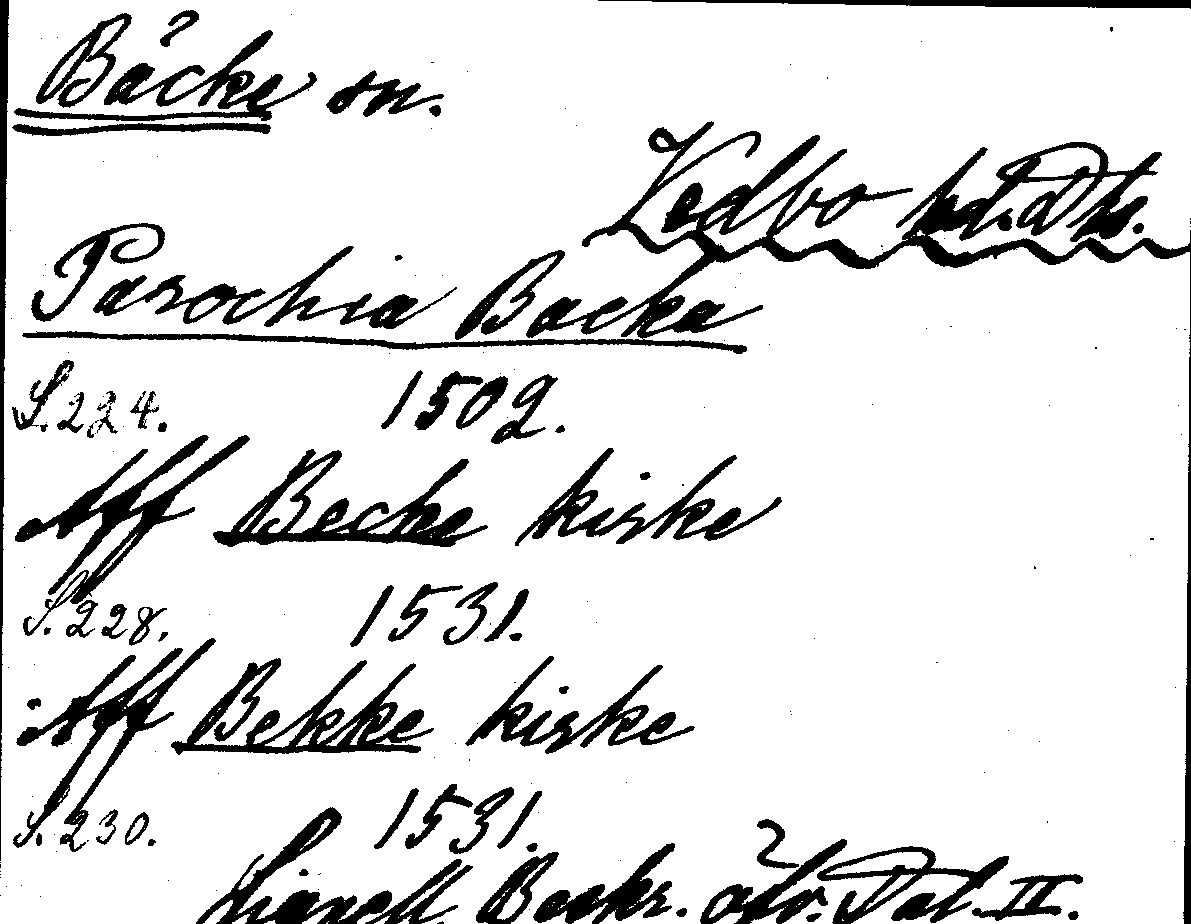 Bäcke sn.
Vedbo hd. Dls.
Parochia Backa
S. 224. 1509.
Aff Becke kirke
S. 228. 1531.
Aff Bekke kirke
S. 230. 1531.
Lignell Beskr. öfv. Dal. II.